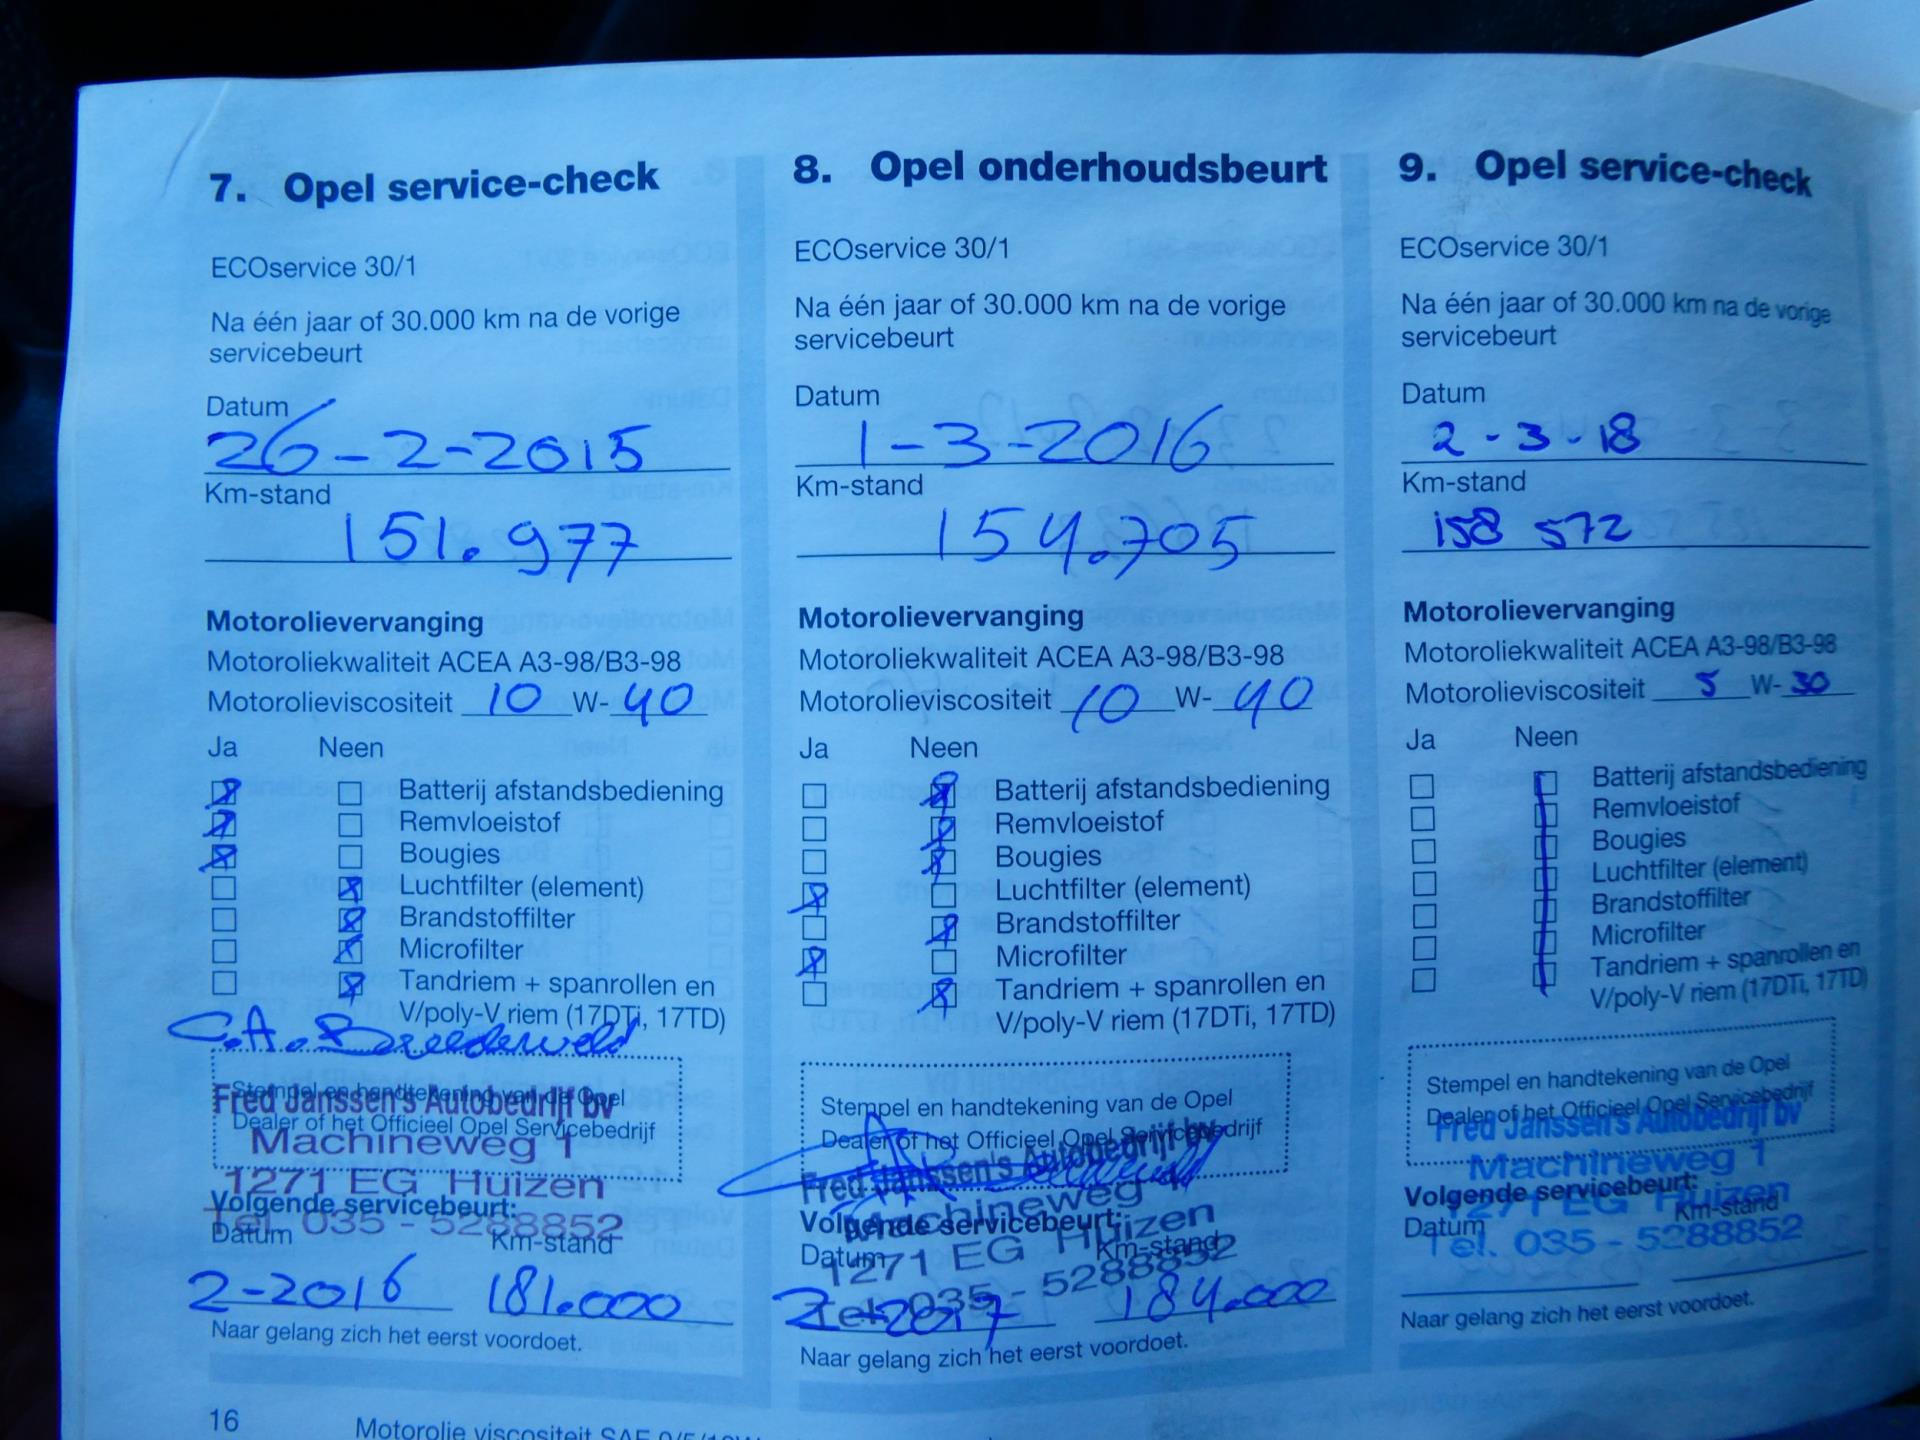 7. Opel service-check
ECOservice 30/1
Na één jaar of 30.000 km na de vorige
servicebeurt
Datum
26-2-2015
Km-stand
151.977
Motorolievervanging
Motoroliekwaliteit ACEA A3-98/B3-98
Motorolieviscositeit 10 W- 40
Ja Neen
Batterij afstandsbediening
Remvloeistof
Bougies
Luchtfilter (element)
Brandstoffilter
Microfilter
Tandriem + spanrollen en
V/poly-V riem (17DTi, 17TD)
C.A. Breederveld
Stempel en handtekening van de Opel
Fred Janssen's Autobedrijf bv
Dealer of het Officieel Opel Servicebedrijf
Machineweg 1
1271 EG Huizen
Volgende servicebeurt:
Tel. 035 - 5288852
Datum Km-stand
2-2016 181.000
Naar gelang zich het eerst voordoet.
16
Motorolie viscositeit SAE
8. Opel onderhoudsbeurt
ECOservice 30/1
Na één jaar of 30.000 km na de vorige
servicebeurt
Datum
1-3-2016
Km-stand
154.705
Motorolievervanging
Motoroliekwaliteit ACEA A3-98/B3-98
Motorolieviscositeit 10 W- 40
Ja Neen
Batterij afstandsbediening
Remvloeistof
Bougies
Luchtfilter (element)
Brandstoffilter
Microfilter
Tandriem + spanrollen en
V/poly-V riem (17DTi, 17TD)
Stempel en handtekening van de Opel
Dealer of het Officieel Opel Servicebedrijf
Fred Janssen's Autobedrijf bv
Machineweg 1
Volgende servicebeurt:
1271 EG Huizen
Datum Km-stand
Tel. 035 - 5288852
2-2017 184.000
Naar gelang zich het eerst voordoet.
9. Opel service-check
ECOservice 30/1
Na één jaar of 30.000 km na de vorige
servicebeurt
Datum
2-3-18
Km-stand
158 572
Motorolievervanging
Motoroliekwaliteit ACEA A3-98/B3-98
Motorolieviscositeit 5 W- 30
Ja Neen
Batterij afstandsbediening
Remvloeistof
Bougies
Luchtfilter (element)
Brandstoffilter
Microfilter
Tandriem + spanrollen en
V/poly-V riem (17DTi, 17TD)
Stempel en handtekening van de Opel
Dealer of het Officieel Opel Servicebedrijf
Fred Janssen's Autobedrijf bv
Machineweg 1
Volgende servicebeurt:
1271 EG Huizen
Datum Km-stand
Tel. 035 - 5288852
Naar gelang zich het eerst voordoet.